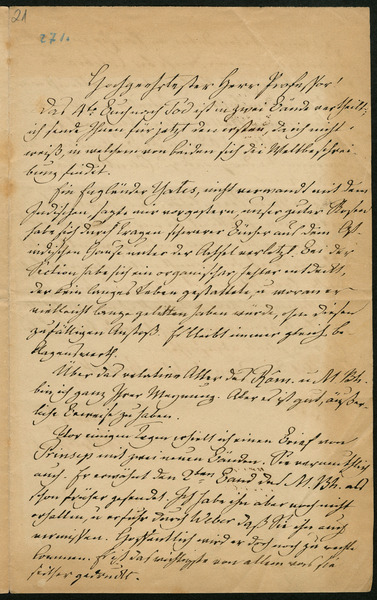 21
271.
Hochgeehrtester Herr Professor!
Das 4te Buch nach Tod ist in zwei Bände vertheilt;
ich sende Ihnen für jetzt den ersten, da ich nicht
weiß, in welchem von beiden sich die Weltbeschrei-
bung findet.
Ein Engländer Yates, nicht verwandt mit dem
Indischen, sagte mir vorgestern, unser guter Rosen
habe sich durch Tragen schwerer Bücher aus dem Ost-
indischen Hause unter der Achsel verletzt. Bei der
Section habe sich ein organischer Fehler entdeckt,
der kein langes Leben gestattete, u woran er
vielleicht lange gelitten haben würde, ohne diesen
zufälligen Anstoß. Es bleibt immer gleich be-
klagenswerth.
Über das relative Alter des Râm. u M. Bh.
bin ich ganz Ihrer Meynung. Aber es ist gut, äußer-
liche Beweise zu haben.
Vor einigen Tagen erhielt ich einen Brief von
Prinsep mit zwei neuen Bänden. Sie vermuthlich
auch. Er erwähnt den 2ten Band des M. Bh. als
schon früher gesendet. Ich habe ihn aber noch nicht
erhalten, u erfuhr durch Weber daß Sie ihn auch
vermissen. Hoffentlich wird er doch noch zu rechte
kommen. Es ist das wichtigste von allem was sie
seither gedruckt.